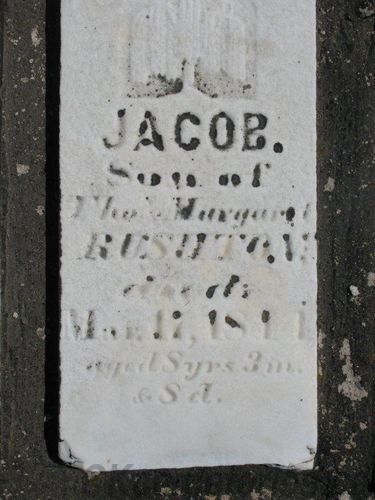 JACOB.
Son of
Tho. Margaret
RUSHTON
died
Mar. 17, 18
aged 8 yrs. 3 m.
& 8 d.